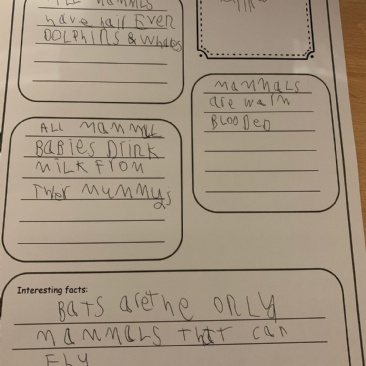 ALL MAMMALS
have hair Even
DOLPhiNS & Whales
MaMMALS
are warm
BLOODeD
ALL MAMMAL
BABiES DRiNK
MiLK FROM
THeir MuMMys
Interesting facts:
BATS are the ONLY
MAMMALS THAT can
FLY